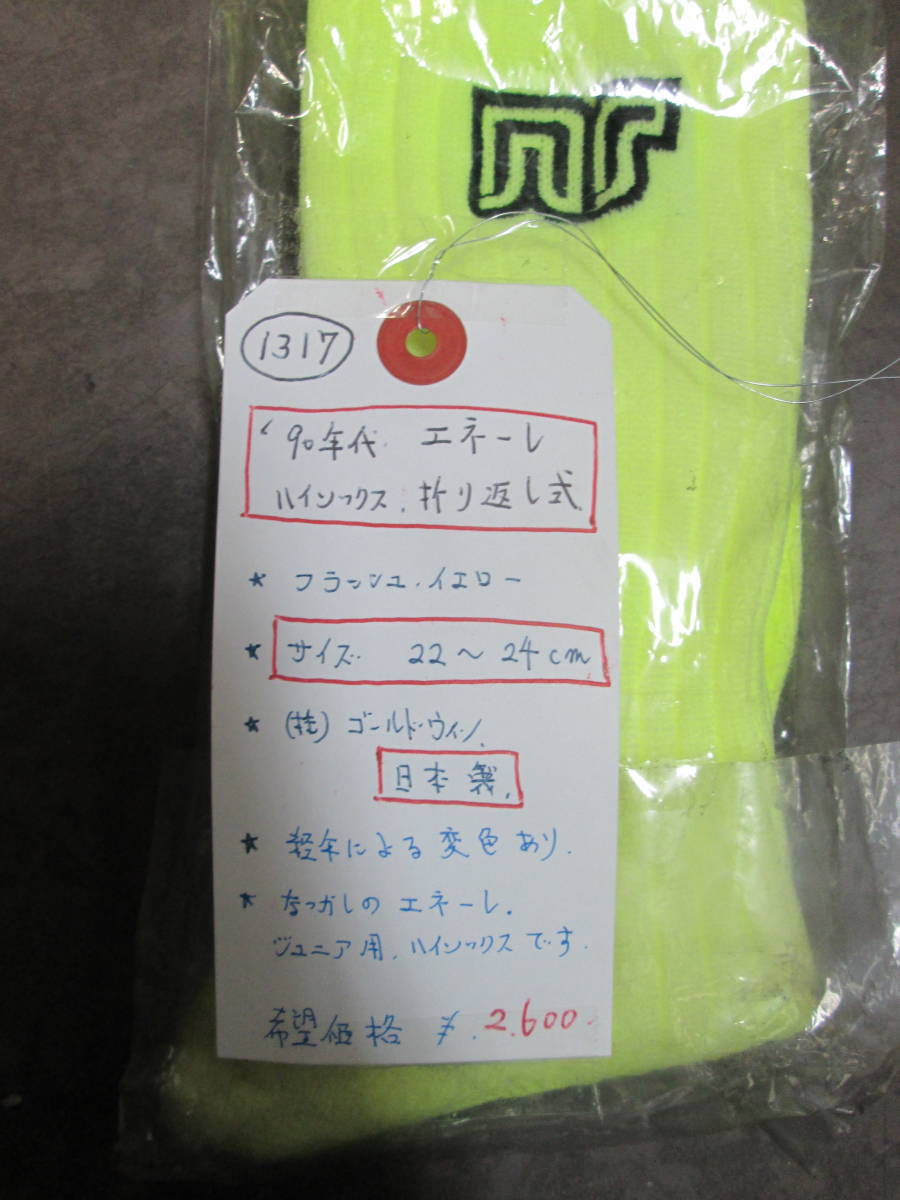 nr
1317
'90年代 エネーレ
ハイソックス.折り返し式.
★ フラッシュ.イエロー
★ サイズ 22〜24cm.
★ (株)ゴールドウィン.
日本製.
★ 経年による変色あり.
★ なつかしの エネーレ.
ジュニア用.ハイソックスです.
希望価格 ¥.2.600-